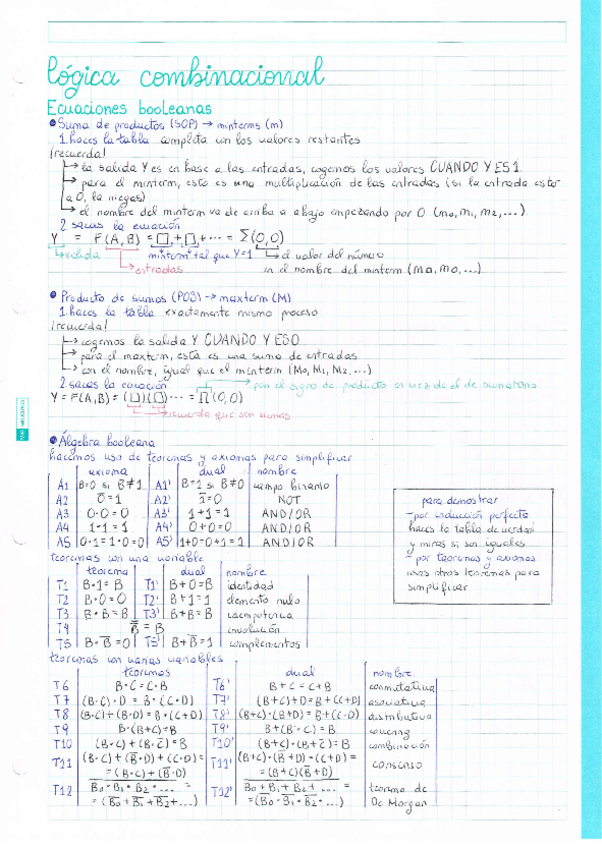 lógica combinacional
Ecuaciones booleanas
• Suma de productos (SOP) → minterms (m)
1. haces la tabla completa con los valores restantes
¡recuerda!
→ la salida Y es en base a las entradas, cogemos los valores CUANDO Y ES 1.
→ para el minterm, esto es una multiplicación de las entradas (si la entrada está
a 0, la niegas)
→ el nombre del minterm va de arriba a abajo empezando por 0 (m0, m1, m2, ...)
2. sacas la ecuación
Y = F(A,B) = □ + □ + ... = Σ(0,0)
→ salida
minterm tal que Y=1
→ el valor del número
→ entradas
en el nombre del minterm (m0, m0, ...)
• Producto de sumas (POS) → maxterm (M)
1. haces la tabla exactamente mismo proceso
¡recuerda!
→ cogemos la salida Y CUANDO Y ES 0
→ para el maxterm, esta es una suma de entradas
→ con el nombre, igual que el minterm (M0, M1, M2, ...)
2. sacas la ecuación
→ pon el signo de producto en vez de el de sumatorio
Y = F(A,B) = (□)(□)... = Π(0,0)
→ recuerda que son sumas
• Álgebra booleana
hacemos uso de teoremas y axiomas para simplificar
axioma dual nombre
A1 B=0 si B≠1 A1' B=1 si B≠0 campo binario
A2 0̅=1 A2' 1̅=0 NOT
A3 0·0=0 A3' 1+1=1 AND/OR
A4 1·1=1 A4' 0+0=0 AND/OR
A5 0·1=1·0=0 A5' 1+0=0+1=1 AND/OR
para demostrar
- por inducción perfecta
haces la tabla de verdad
y miras si son iguales
- por teoremas y axiomas
usas otros teoremas para
simplificar
teoremas con una variable
teorema dual nombre
T1 B·1=B T1' B+0=B identidad
T2 B·0=0 T2' B+1=1 elemento nulo
T3 B·B=B T3' B+B=B idempotencia
T4 B̿ = B involución
T5 B·B̅=0 T5' B+B̅=1 complementos
teoremas con varias variables
teoremas dual nombre
T6 B·C=C·B T6' B+C=C+B conmutativa
T7 (B·C)·D=B·(C·D) T7' (B+C)+D=B+(C+D) asociativa
T8 (B·C)+(B·D)=B·(C+D) T8' (B+C)·(B+D)=B+(C·D) distributiva
T9 B·(B+C)=B T9' B+(B·C)=B covering
T10 (B·C)+(B·C̅)=B T10' (B+C)·(B+C̅)=B combinación
T11 (B·C)+(B̅·D)+(C·D)= T11' (B+C)·(B̅+D)·(C+D)= consenso
=(B·C)+(B̅·D) =(B+C)(B̅+D)
T12 B0·B1·B2·... = T12' B0+B1+B2+... = teorema de
=(B̅0+B̅1+B̅2+...) =(B̅0·B̅1·B̅2·...) De Morgan